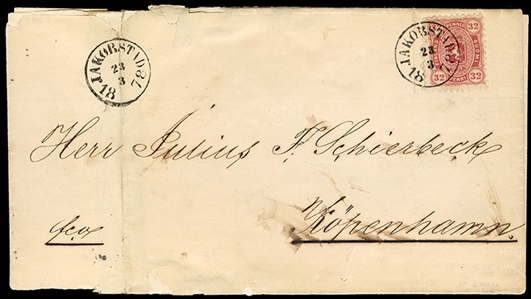 JAKOBSTAD
23
3
1878
JAKOBSTAD
23
3
1878
32 32
32 32
Herr Julius F. Schierbeck
Köpenhamn.
fco